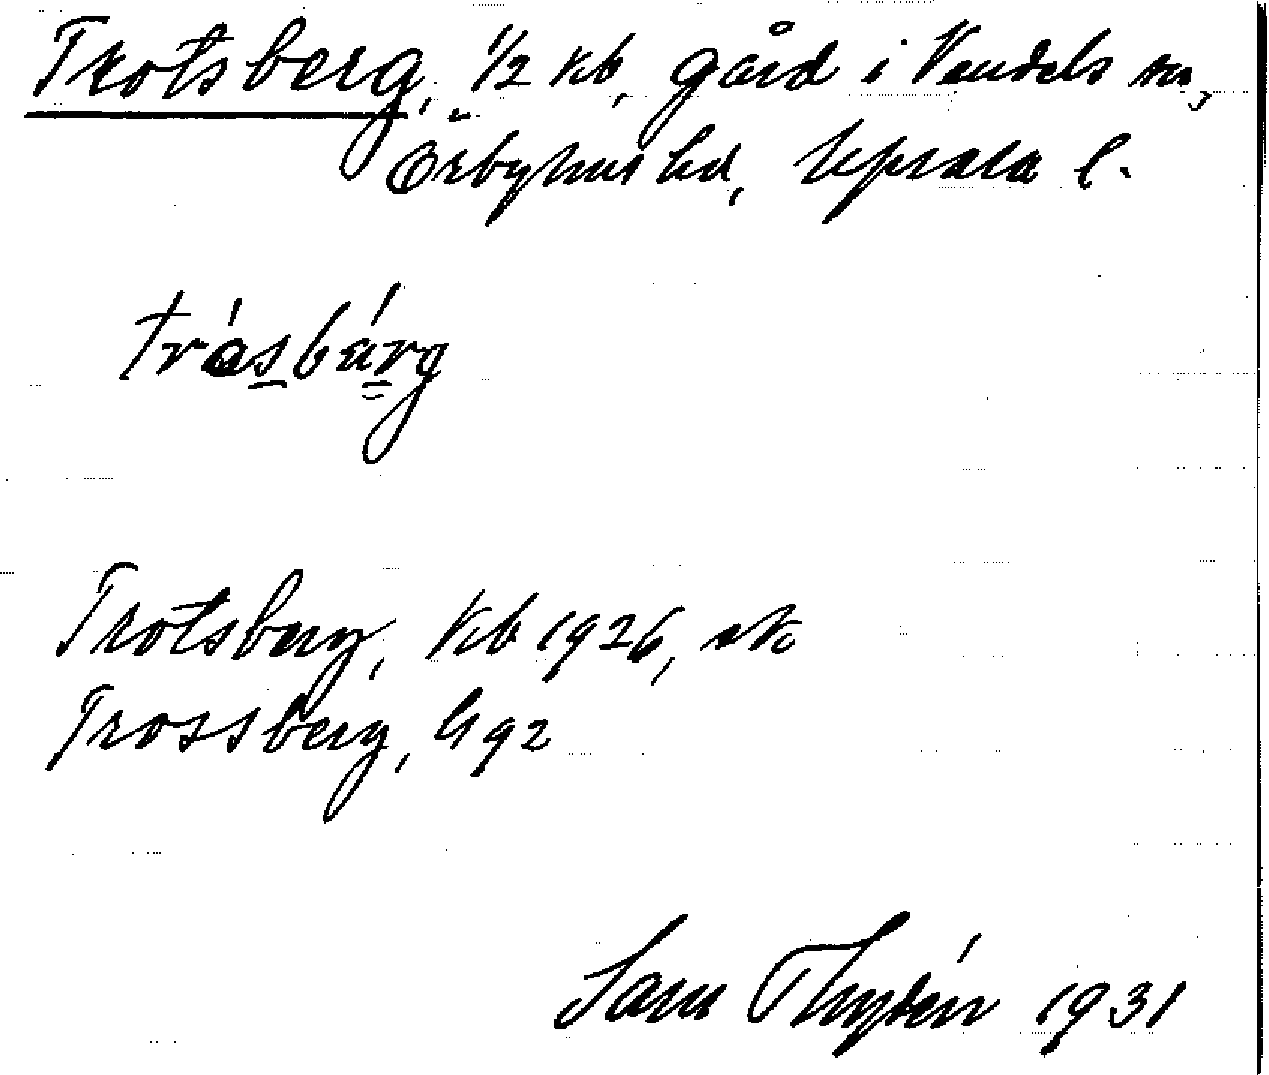 Trotsberg, 1/2 kb, gård i Vendels sn,
Örbyhus hd, Upsala l.
tråsbärg
Trotsberg, Kb 1926,
Trossberg, 92
Sam Thydén 1931